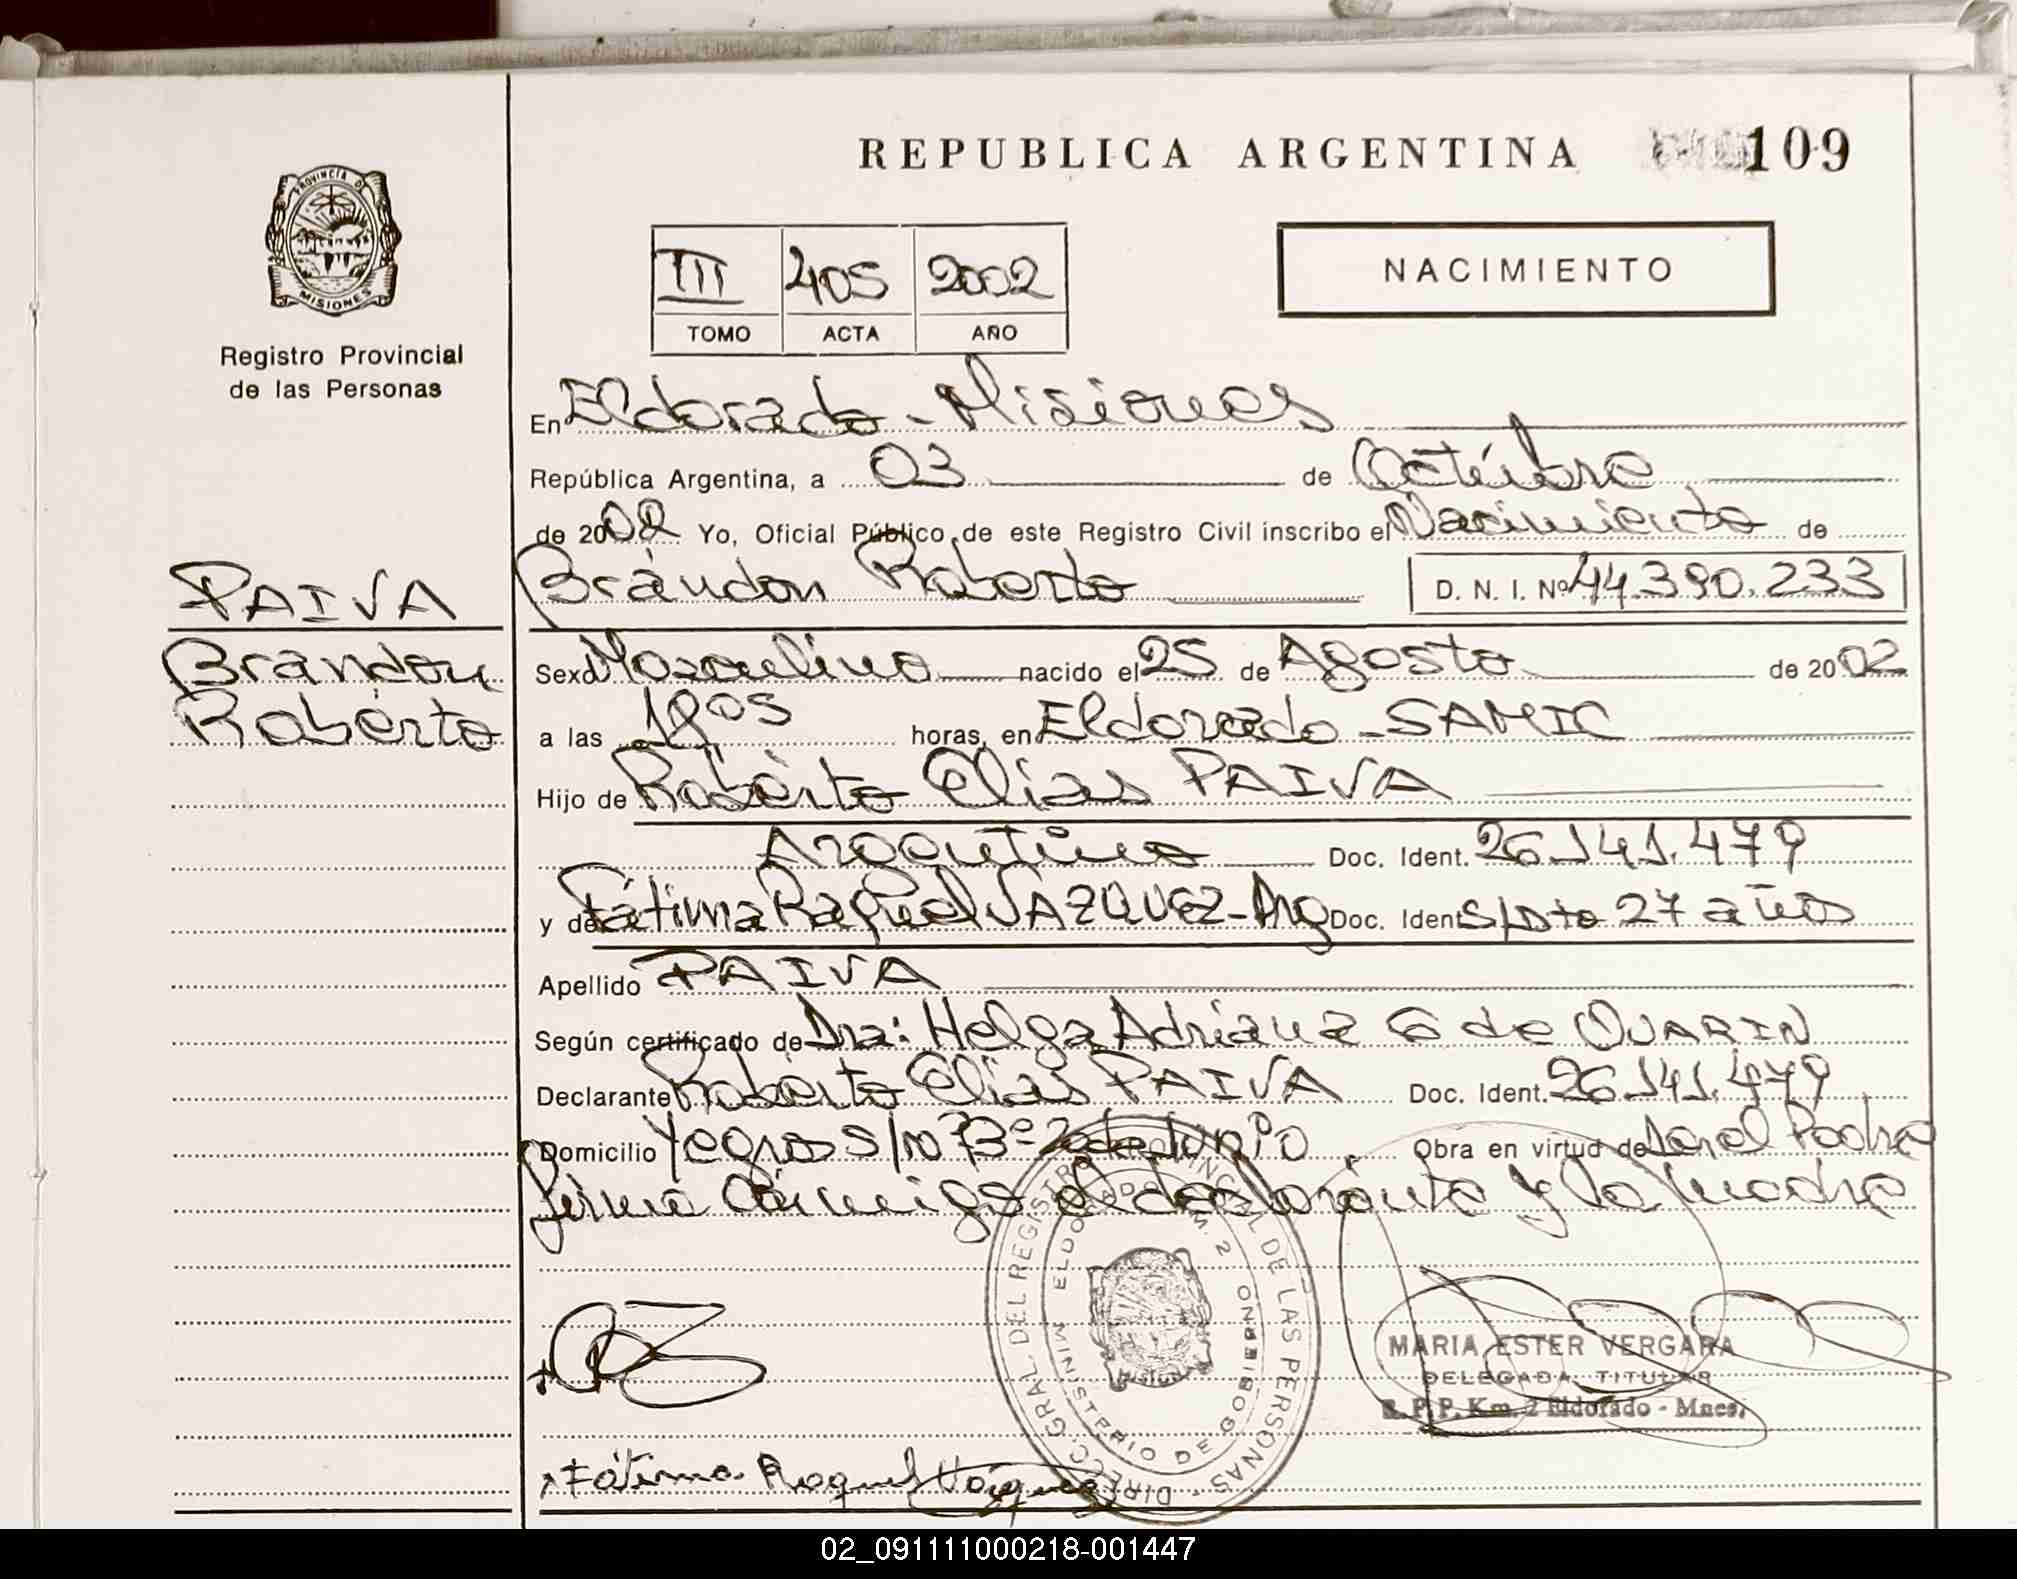 REPUBLICA ARGENTINA 109
PROVINCIA DE
MISIONES
Registro Provincial
de las Personas
III 405 2002
TOMO ACTA AÑO
NACIMIENTO
En Eldorado - Misiones
República Argentina, a 03 de Octubre
de 2002 Yo, Oficial Público de este Registro Civil inscribo el Nacimiento de
PAIVA
Brandon Roberto D. N. I. Nº 44.390.233
Brandon
Roberto
Sexo Masculino nacido el 25 de Agosto de 2002
a las horas, en Eldorado - SAMIC
Hijo de Roberto Elias PAIVA
Argentino Doc. Ident. 26.141.479
y de Fátima Raquel VAZQUEZ - Arg Doc. Ident S/Dto 27 años
Apellido PAIVA
Según certificado de Dra: Helga Adriana G de QUARIN
Declarante Roberto Elias PAIVA Doc. Ident. 26.141.479
Domicilio Yegros s/nº Bº 20 de Junio Obra en virtud de Padre
firma conmigo el declarante y la madre
DIRECC. GRAL. DEL REGISTRO PROVINCIAL DE LAS PERSONAS
MINISTERIO DE GOBIERNO
ELDORADO KM. 2
MARIA ESTER VERGARA
DELEGADA TITULAR
R. P. P. Km. 2 Eldorado - Mnes.
Fátima Raquel
02_091111000218-001447